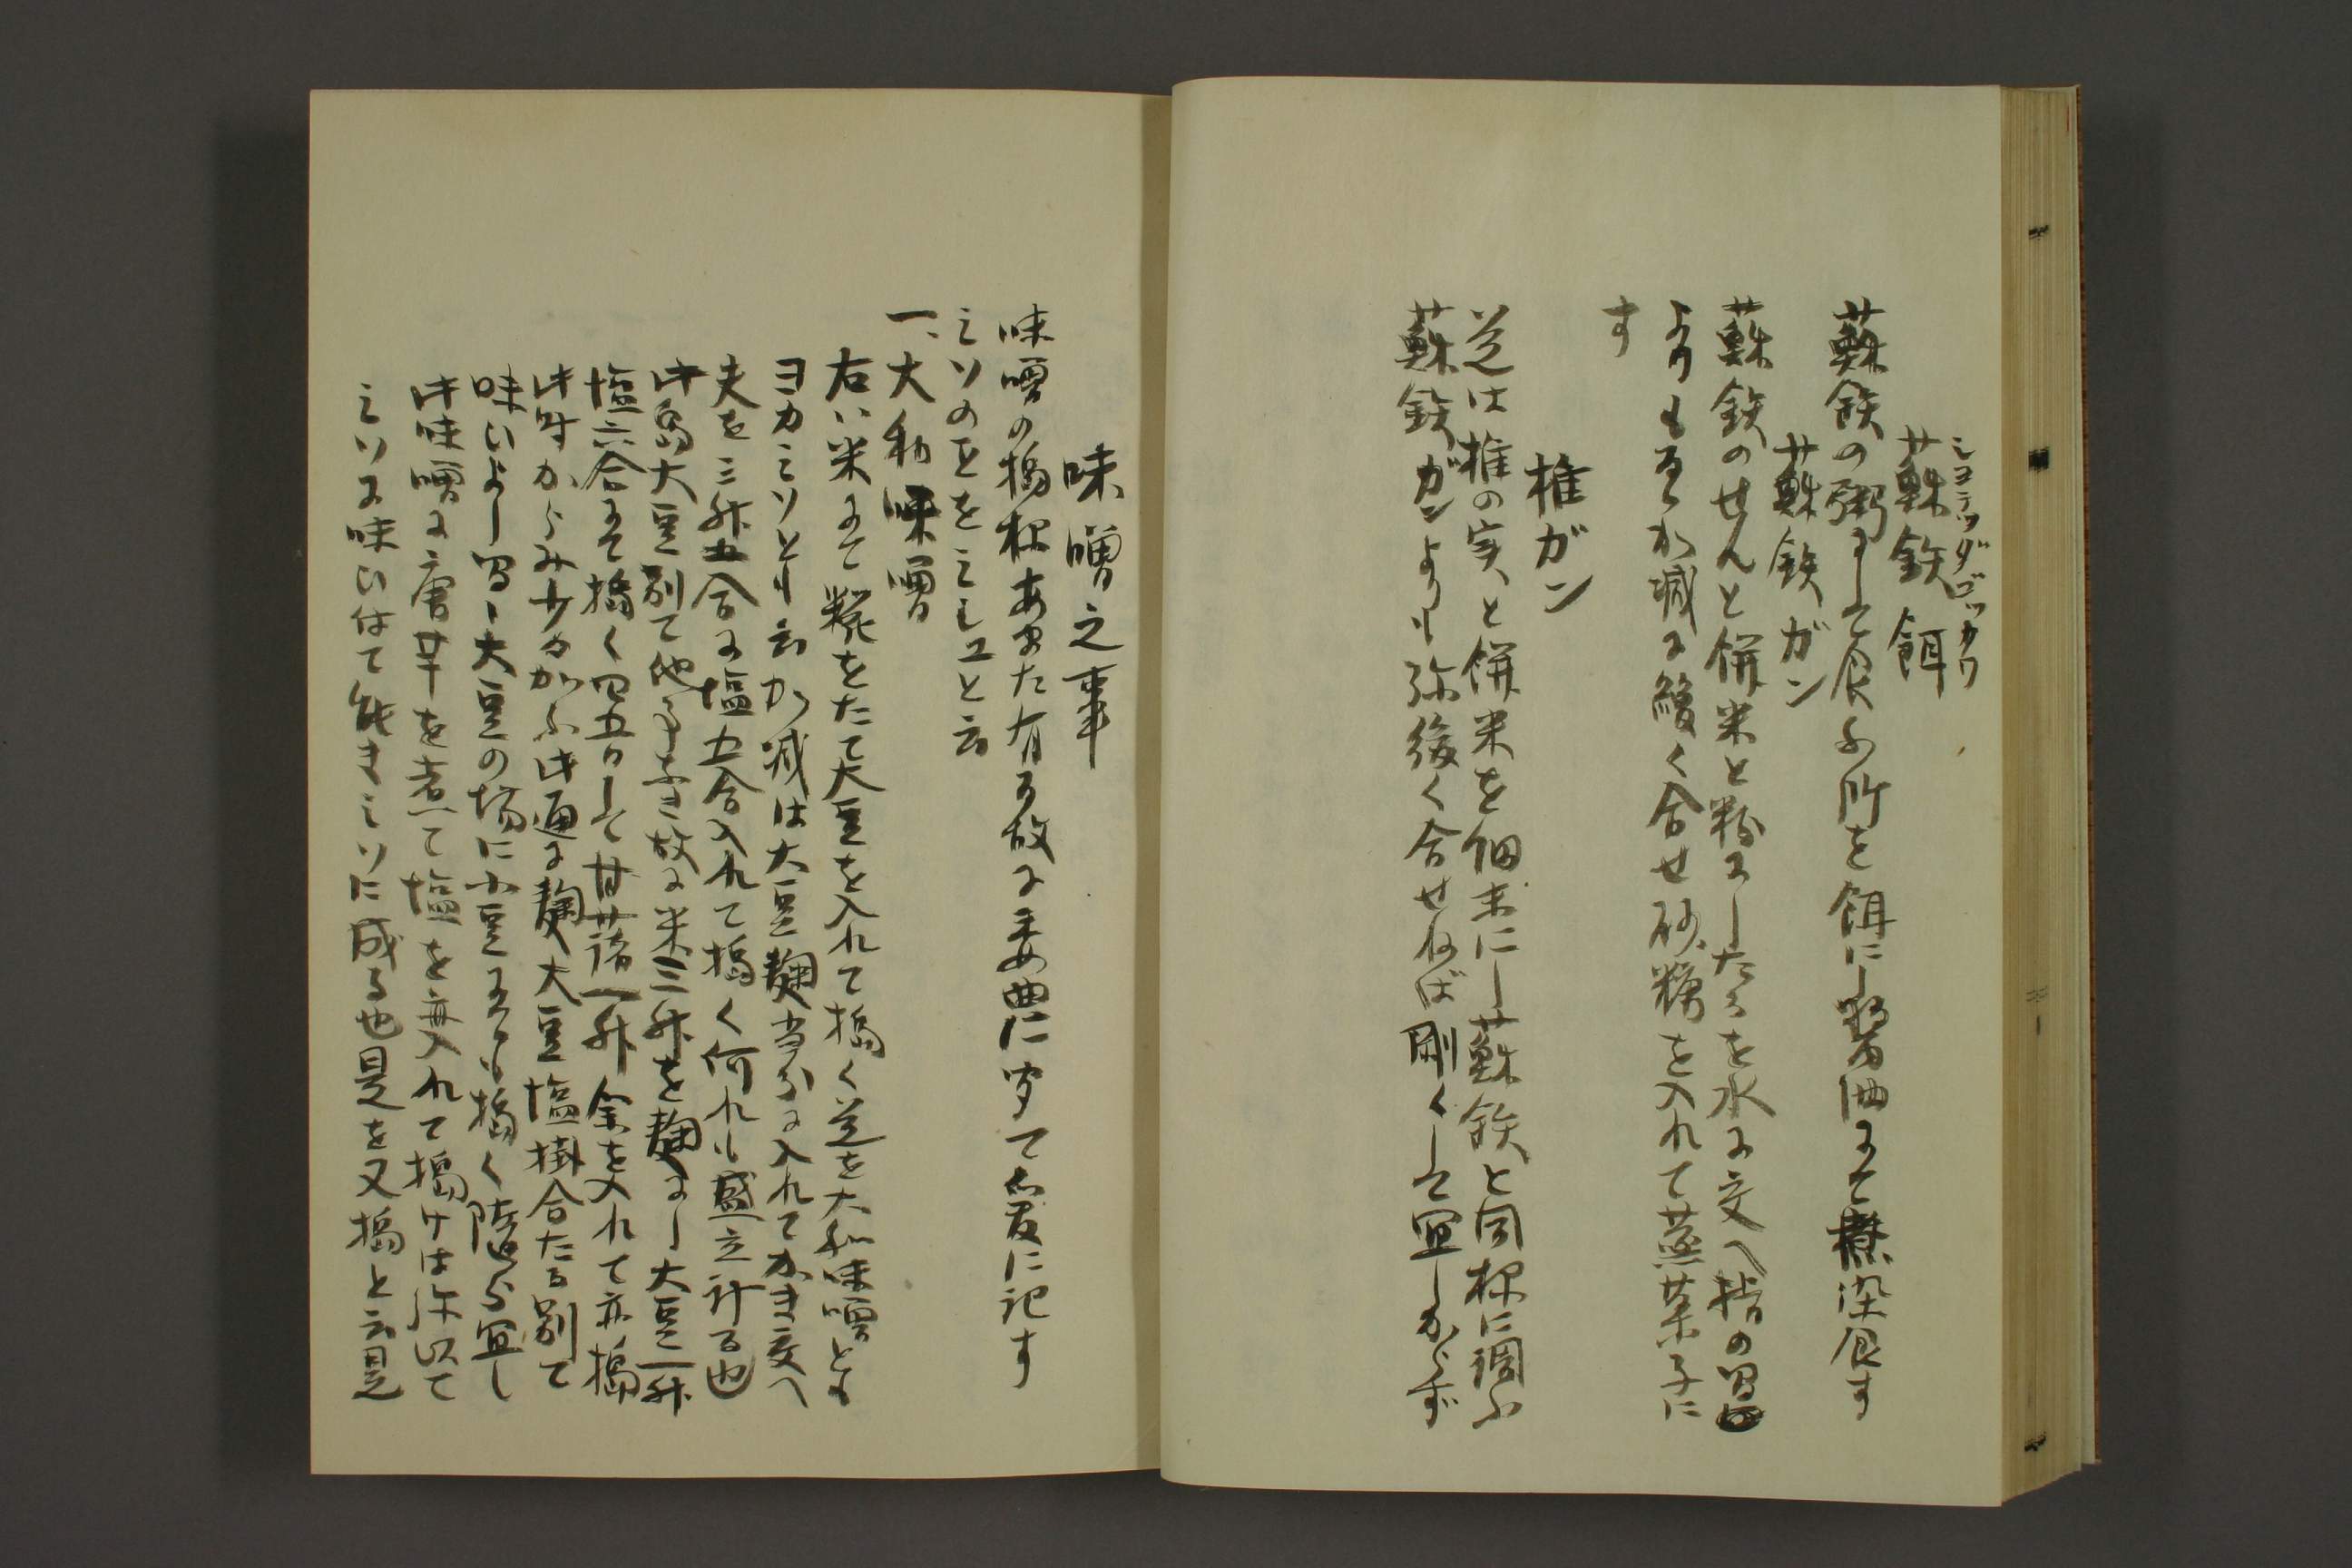 蘓鉄餌
蘓鉄の粥にして食ふ所を餌にし醤油にて煮染食す
蘓鉄ガン
蘓鉄のせんと餅米と粉にしたるを水に交へ指の
よりもるか减に緩く合せ砂糖を入れて蒸菓子に
す
椎ガン
是は椎の実と餅米を細末にし蘓鉄と同様に調ふ
蘓鉄ガンよりも弥緩く合せねば剛くして宜しからず
味噌之事
味噌の搗様あまた有る故に委曲に閇て爰に記す
ミソのことをミシユと云
一、大和味噌
右ハ米にて糀をたて大豆を入れて搗く是を大和味噌とも
ヨカミソとも云か减は大豆麹当分に入れてかき交へ
夫を三升五合に塩五合入れて搗く何れも盛立計る也
此島大豆別て他事多き故に米三升を麹にし大豆一升
塩六合にて搗く四五日して甘藷一升余を入れて亦搗
此時からみ少々加ふ此通に麹大豆塩掛合たる別て
味いよし図大豆の場に小豆にても搗く随分宜し
此味噌に唐芋を煮て塩を交入れて搗けは弥以て
ミソに味いはて能きミソに成る也是を又搗と云是